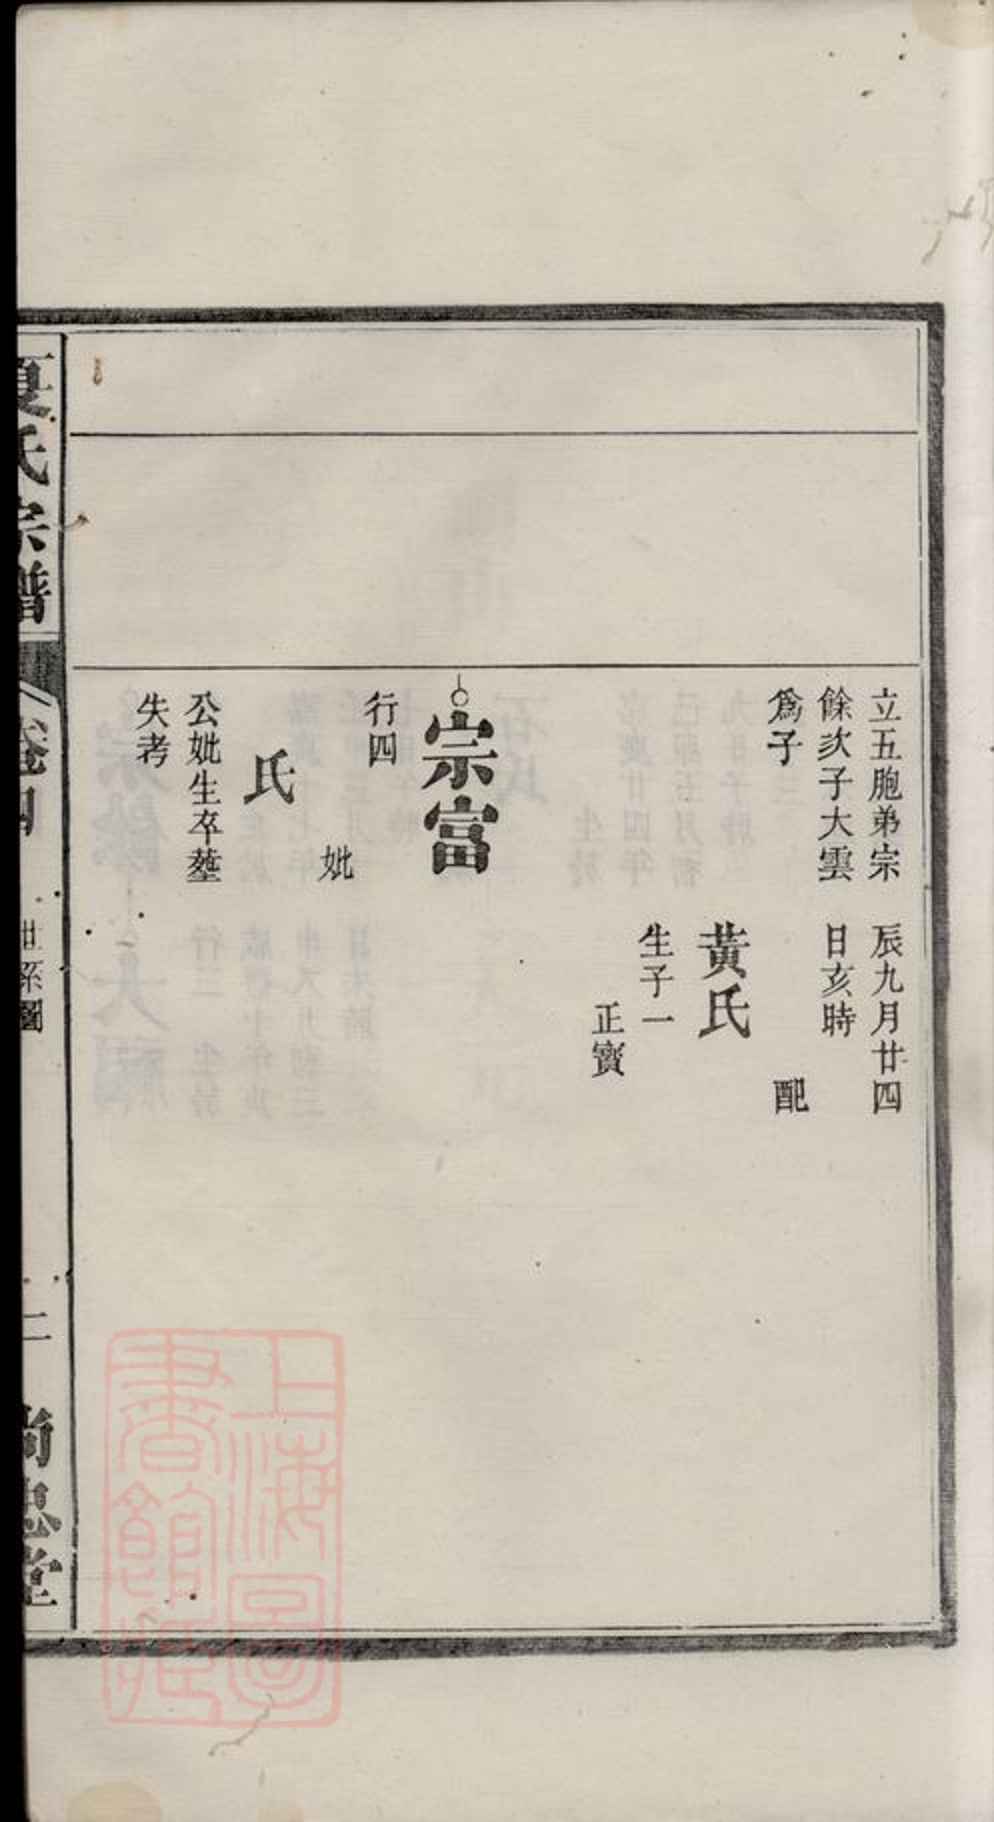 立五胞弟宗
餘次子大雲
爲子
宗富
行四
妣
氏
公妣生卒塟
失考
辰九月廿四
日亥時
配
黄氏
生子一
正寳
夏氏宗譜
卷四
世系圖
二
尚忠堂
上海圖書館藏